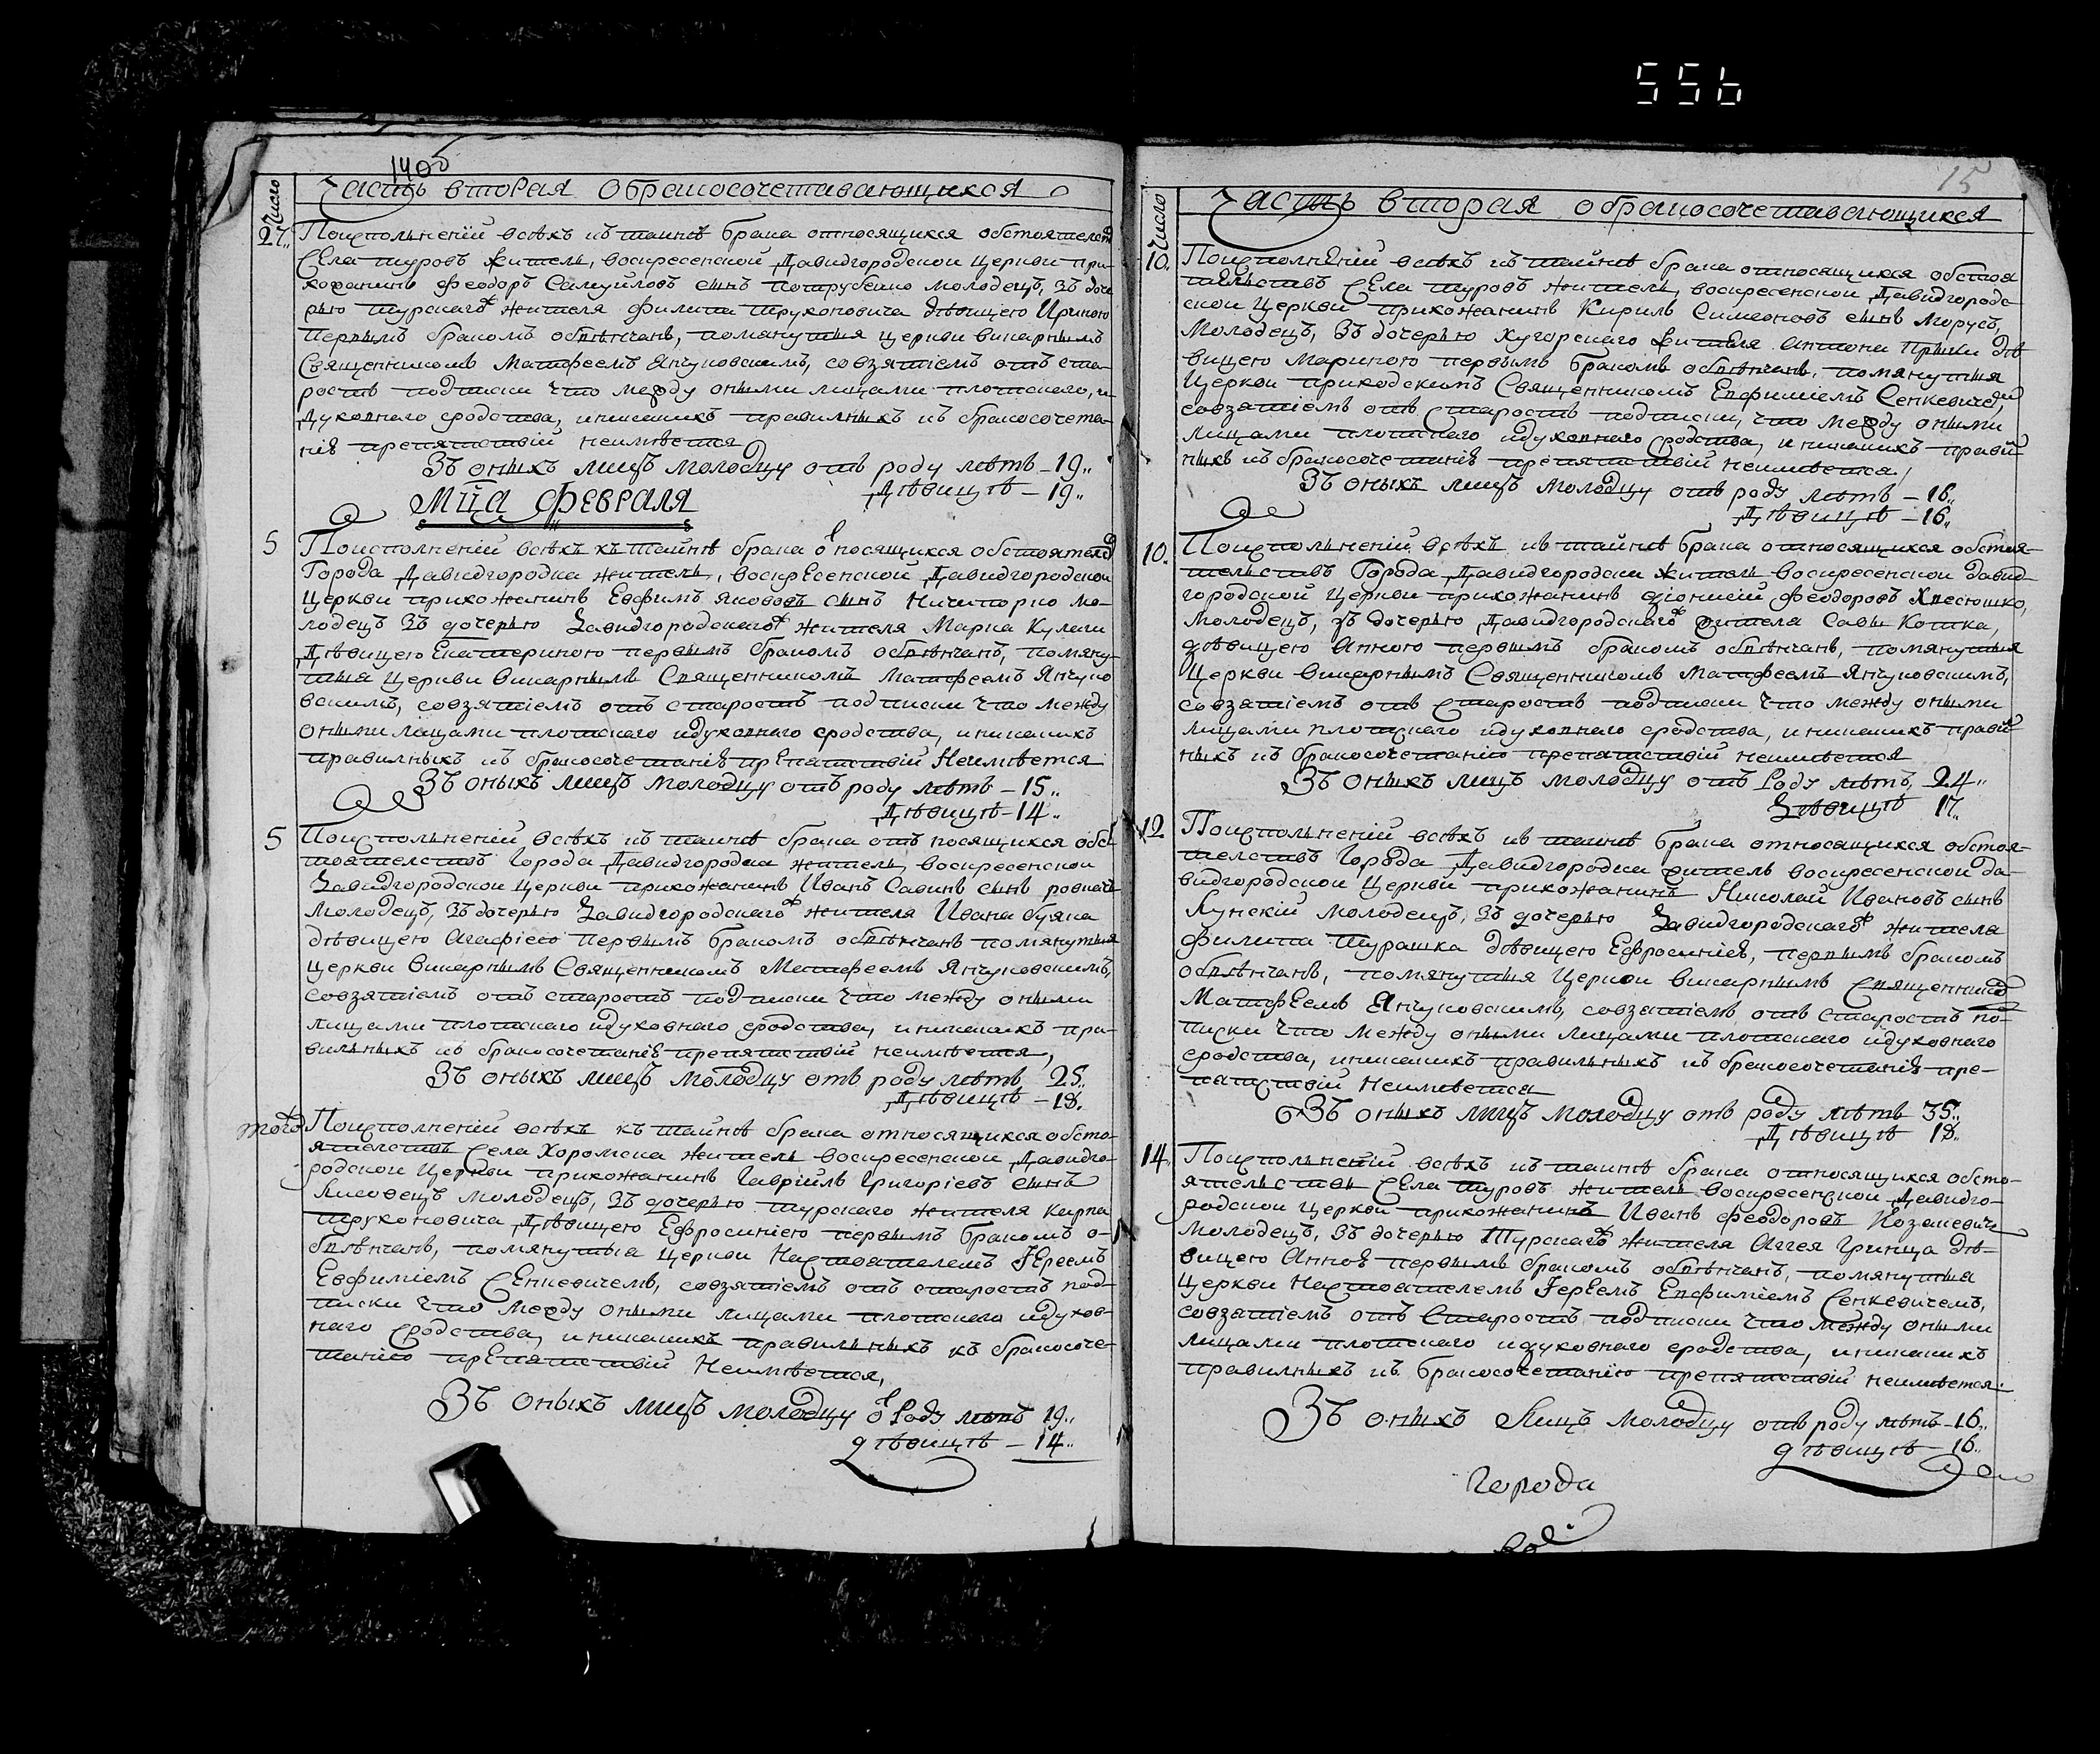 556
Число
Часть вторая обракосочетавающихся
27.
Поисполнении всѣхъ къ таинѣ брака относящихся обстоятелст
Села туровъ житель, воскресенской Давидгородской церкви при-
хожанинъ Феодоръ Самуиловъ сынъ молодецъ, зъ доче
рью турскаго жителя Филипа Трухоновича дѣвицею Ириною
первымъ бракомъ обвѣнчанъ, помянутыя церкви викарнымъ
Священникомъ Матфеемъ Янчуковскимъ, совзятіемъ отъ ста-
ростъ подписки что между оными лицами плотскаго, и
духовнаго сродства, иникакихъ правилныхъ къ бракосочета-
нiѣ препятствiй неимѣется
Зъ оныхъ лицъ молодцу отъ роду лѣтъ – 19.
Дѣвицѣ – 19.
Мца Февраля
5
Поисполненiи всѣхъ къ таинѣ брака относящихся обстоятелст
Города Давидгородка житель, воскресенской Давидгородской
церкви прихожанинъ Евфимъ яковъ сынъ Ничипорко мо-
лодецъ зъ дочерью Давидгородскаго жителя Марка Кулаги
Дѣвицею Екатериною первымъ бракомъ обвѣнчанъ, помяну-
тыя церкви викарнымъ Священникомъ Матфеемъ Янчуко
вскимъ, совзятіемъ отъ старостъ подписки что между
оными лицами плотскаго идуховнаго сродства, иникакихъ
правилныхъ къ бракосочетанiѣ препятствiй Неимѣется
Зъ оныхъ лицъ молодцу отъ роду лѣтъ – 15.
Дѣвицѣ – 14.
5
Поисполненiи всѣхъ къ таинѣ брака относящихся обс
тоятелствъ Города Давидгородка житель, воскресенской
Давидгородской церкви прихожанинъ Иванъ Савинъ сынъ
Молодецъ, зъ дочерью Давидгородскаго жителя Ивана буяка
дѣвицею Агафiею первымъ бракомъ обвѣнчанъ помянутыя
церкви викарнымъ Священникомъ Матфеемъ Янчуковскимъ,
совзятiемъ отъ старостъ подписки что между оными
лицами плотскаго идуховнаго сродства, иникакихъ пра-
вильныхъ къ бракосочетанiѣ препятствiй неимѣется,
Зъ оныхъ лицъ молодцу отъ роду лѣтъ 25.
Дѣвицѣ – 18.
того
Поисполненiи всѣхъ къ таинѣ брака относящихся обсто-
ятелствъ Села Хоромска житель воскресенской Давидго-
родской церкви прихожанинъ Гаврiилъ Григорiевъ сынъ
Лисовецъ молодецъ, зъ дочерью турскаго жителя Карпа
Трухоновича Дѣвицею Ефросинiею первымъ бракомъ о-
бвѣнчанъ, помянутыя церкви Настоятелемъ Iереемъ
Евфимiемъ Сенкевичемъ, совзятiемъ отъ старостъ под-
писки что между оными лицами плотскаго идухов-
наго сродства, иникакихъ правильныхъ къ бракосоче-
танiю препятствiй Неимѣется,
Зъ оныхъ лицъ молодцу о роду лѣтъ 19.
дѣвицѣ – 14.
15
Число
Часть вторая обракосочетавающихся
10.
Поисполненiй всѣхъ къ таинѣ брака относящихся обстоя
тельствъ Села туровъ житель, воскресенской Давидгородс-
ской церкви прихожанинъ Кирилъ Симеоновъ сынъ Морусъ,
Молодецъ, зъ дочерью жителя Антона дѣ-
вицею Мариною первымъ бракомъ обвѣнчанъ, помянутыя
Церкви приходскимъ Священникомъ Евфимiемъ Сенкевичемъ
совзятiемъ отъ Старостъ подписки, что между оными
лицами плотскаго идуховнаго сродства, иникакихъ прави
ныхъ къ бракосочетанiѣ препятствiй неимѣется,
Зъ оныхъ лицъ молодцу отъ роду лѣтъ – 18.
Дѣвицѣ – 16.
10.
Поисполненiи всѣхъ къ таинѣ брака относящихся обстоя-
тельствъ Города Давидгородки житель воскресенской давид-
городской церкви прихожанинъ Дiонисiй Феодоровъ
Молодецъ, зъ дочерью Давидгородскаго жителя Савы Кошка,
дѣвицею Анною первымъ бракомъ обвѣнчанъ, помянутыя
Церкви викарнымъ Священникомъ Матфеемъ Янчуковскимъ,
совзятiемъ отъ Старостъ подписки что между оными
лицами плотскаго идуховнаго сродства, иникакихъ прави
ныхъ къ бракосочетанiю препятствiй неимѣется
Зъ оныхъ лицъ молодцу отъ Роду лѣтъ, 24.
Дѣвицѣ 17.
12
Поисполненiи всѣхъ къ таинѣ брака относящихся обстоя-
телствъ Города Давидгородка житель воскресенской да-
видгородской Церкви прихожанинъ Николай Ивановъ сынъ
Лунскiй молодецъ, зъ дочерью Давидгородскаго жителя
Филипа Турашка дѣвицею Ефросинiеѣ, первымъ бракомъ
обвѣнчанъ, помянутыя Церкви викарнымъ Священником
Матфеемъ Янчуковскимъ, совзятiемъ отъ старостъ по-
писки что между оными лицами плотскаго идуховнаго
сродства, иникакихъ правильныхъ къ бракосочетанiя пре-
пятствiй Неимѣется
Зъ оныхъ лицъ молодцу отъ роду лѣтъ 35.
Дѣвицѣ 18.
14.
Поисполненiй всѣхъ къ таинѣ брака относящихся обсто-
ятельствъ Села туровъ житель воскресенской Давидго-
родской церкви прихожанинъ Иванъ Феодоровъ Козакевичъ
молодецъ, зъ дочерью Турскаго жителя Аггея Гринца дѣ-
вицею Анноѣ первымъ бракомъ обвѣнчанъ, помянутыя
Церкви Настоятелемъ Iереемъ Евфимiемъ Сенкевичемъ,
совзятiемъ отъ Старостъ подписки что между оными
лицами плотскаго идуховнаго сродства, иникакихъ
правилныхъ къ бракосочетанiю препятствiй неимѣется.
Зъ оныхъ Лицъ молодцу отъ роду лѣтъ – 16.
дѣвицѣ – 16.
Города